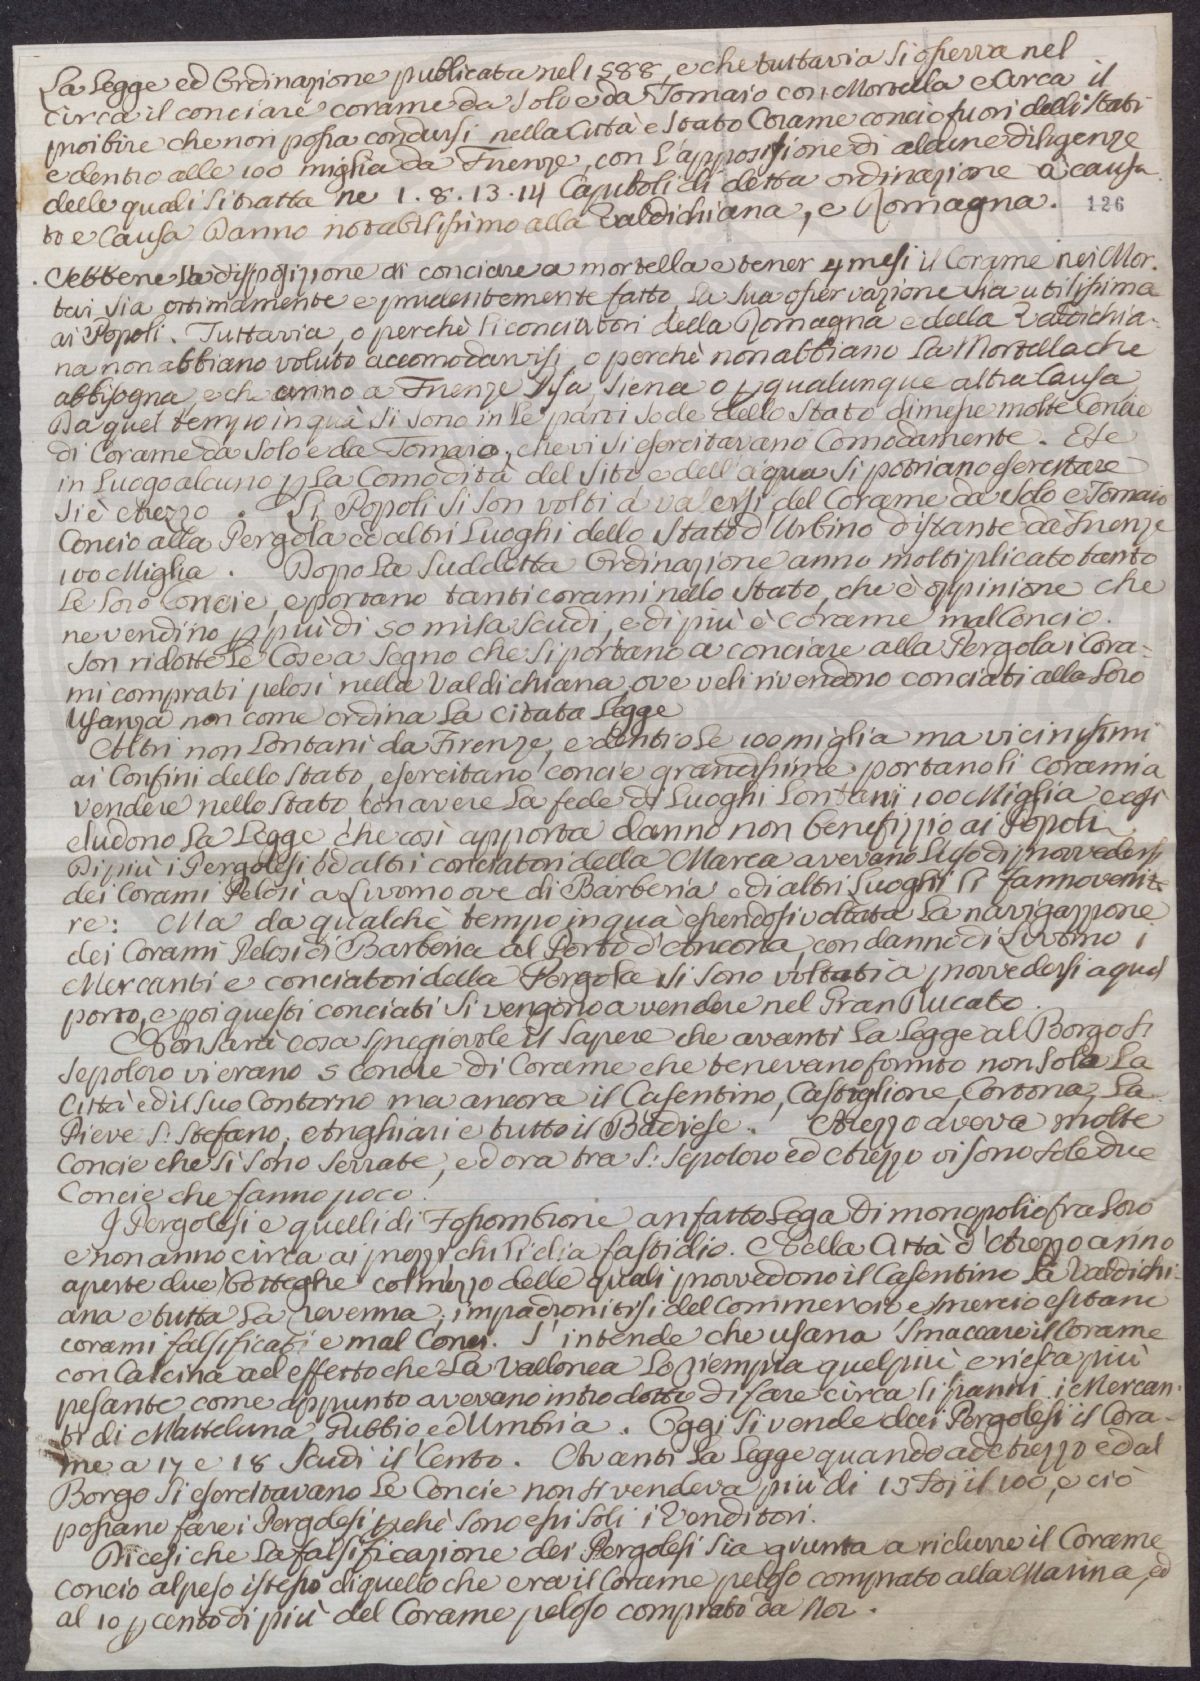 La Legge ed Ordinazione publicata nel 1588, e che tuttavia si osserva nel
circa il conciare corame da Solo e da Tomaio con Mortella e circa il
proibire che non possa condursi nella Città e Stato Corame concio fuori delli Stati
e dentro alle 100 miglia da Firenze, con l'apposizione di alcune diligenze
delle quali si tratta ne 1. 8. 13. 14 Capitoli di detta ordinazione à causa
to e Causa Danno notabilissimo alla Valdichiana, e Romagna.
126
Sebbene la disposizione di conciare a mortella e tener 4 mesi il Corame nei Mor-
tai sia ottimamente e prudentemente fatto, la sua osservazione sia utilissima
ai Popoli. Tuttavia, o perchè li conciatori della Romagna e della Valdichia-
na non abbiano voluto accomodarvisi, o perchè non abbiano la Mortella che
abbisogna, e che anno a Firenze Pisa, Siena o p qualunque altra Causa
Da quel tempo in quà si sono in le parti sode dello Stato dimesse molte Concie
di Corame da Solo e da Tomaio, che vi si esercitavano Comodamente. E se
in Luogo alcuno p la Comodità del Sito e dell'acqua si potriano esercitare
si è Arezzo. Li Popoli si son volti à valersi del Corame da Solo e Tomaio
Concio alla Pergola ed altri Luoghi dello Stato d'Urbino distante da Firenze
100 Miglia. Dopo la suddetta Ordinazione anno moltiplicato tanto
le loro Concie, e portano tanti corami nello Stato, che è oppinione che
ne vendino p più di 50 mila scudi, e di più è Corame mal Concio.
Son ridotte le Cose a Segno che si portano a conciare alla Pergola i Cora=
mi comprati pelosi nella Valdichiana, ove veli rivendono conciati alla loro
Usanza non come ordina la citata Legge
Altri non Lontani da Firenze, e dentro le 100 miglia ma vicinissimi
ai Confini dello Stato, esercitano concie grandissime. portano li corami a
vendere nello Stato con avere la fede di Luoghi Lontani 100 Miglia e così
eludono la Legge che così apporta danno non benefizzio ai Popoli
Di più i Pergolesi ed altri conciatori della Marca avevano l'uso di provvedersi
dei Corami Pelosi a Livorno ove di Barberia e di altri Luoghi si fanno veni
re: Ma da qualche tempo in quà essendosi voltata la navigazzione
dei Corami Pelosi di Barberia al Porto d'Ancona, con danno di Livorno i
Mercanti e conciatori della Pergola si sono voltati a provvedersi a quel
porto, e poi questi conciati si vengono a vendere nel Gran Ducato.
Non sarà cosa spregievole il sapere che avanti la Legge al Borgo S.
Sepolcro vi erano 5 Concie di Corame che tenevano fornito non solo la
Città ed il suo Contorno ma ancora il Casentino, Castiglione, Cortona, la
Pieve S. Stefano, Anghiari e tutto il Badiese. Arezzo aveva molte
Concie che si sono serrate, ed ora tra S. Sepolcro ed Arezzo vi sono sole due
Concie che fanno poco.
I Pergolesi e quelli di Fossombrone an fatto Lega di monopolio fra loro
e non anno circa ai prezzi chi li dia fastidio. Nella Città d'Arezzo anno
aperte due Botteghe col mezzo delle quali provvedono il Casentino la Valdichi-
ana e tutta la Teverina, impadronitisi del Commercio e smercio esitano
corami falsificati e mal Conci. S'intende che usano smaccare il Corame
con Calcina ad effetto che la Vallonea lo riempia quel più, e riesca più
pesante come appunto avevano introdotto di fare circa li panni i Mercan-
ti di Mattelina Gubbio ed Umbria. Oggi si vende dai Pergolesi il Cora-
me a 17 e 18 Scudi il Cento. Avanti la Legge quando ad Arezzo ed al
Borgo si esercitavano le Concie non si vendeva più di 13 il 100, e ciò
possano fare i Pergolesi pchè sono essi soli i Venditori.
Dicesi che la falsificazione dei Pergolesi sia giunta a ridurre il Corame
concio al peso istesso di quello che era il Corame peloso comprato alla Marina, ed
al 10 p cento di più del Corame peloso comprato da Noi.